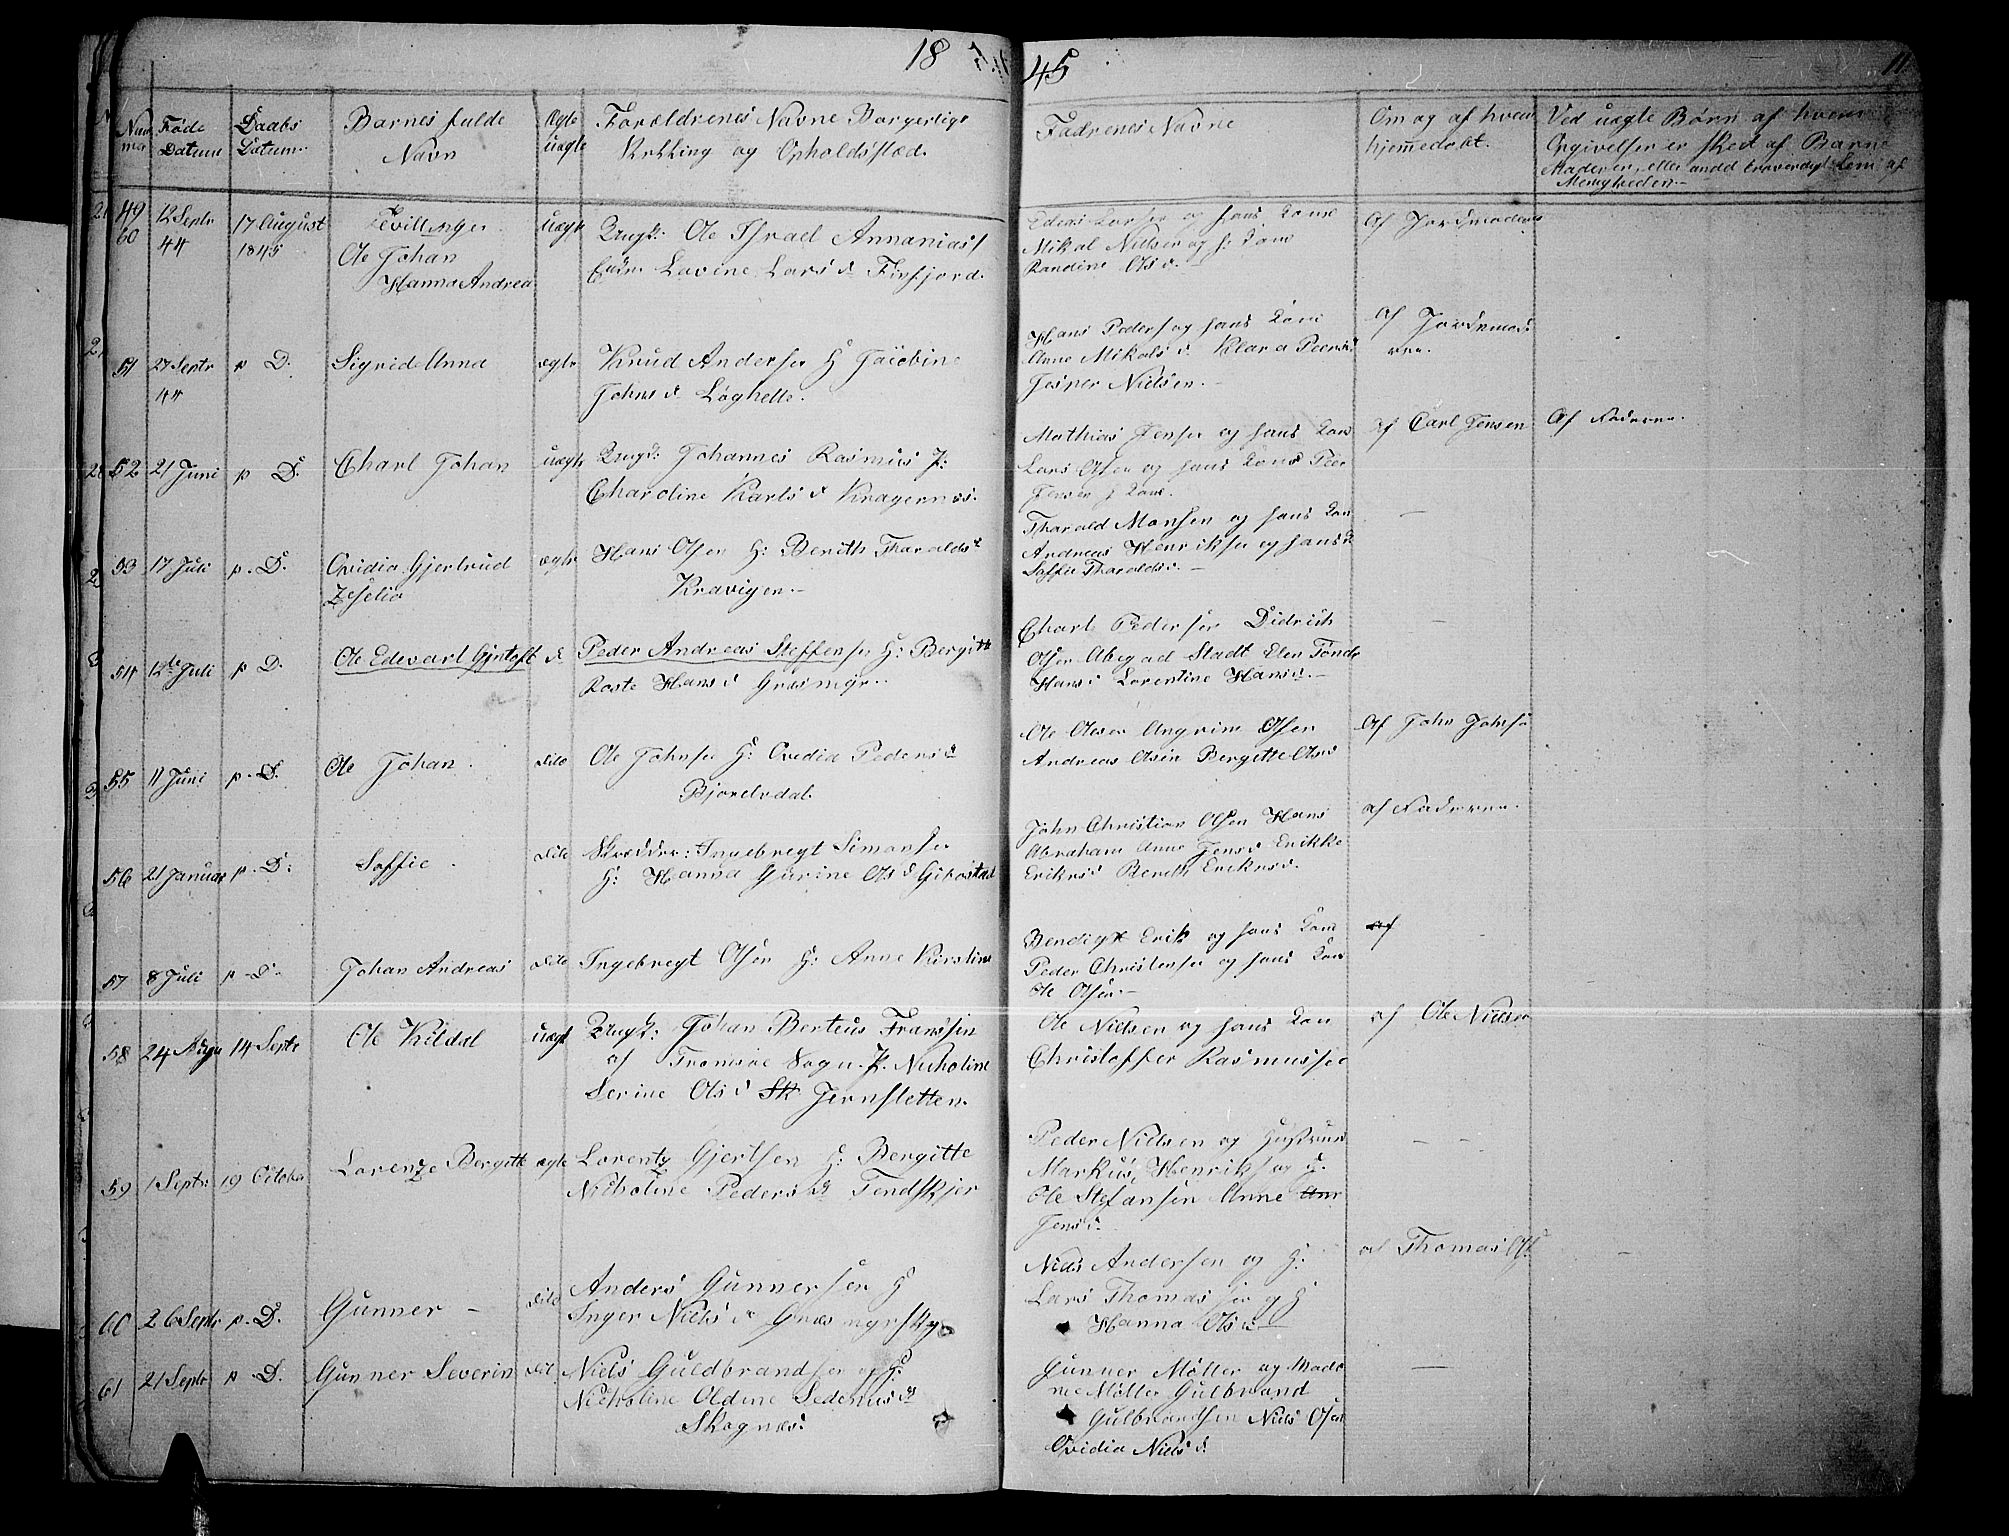 18 45
11
Num
mer
Føde
Datum
Daabs
Datum
Barnes fulde
Navn
Ægte
uægte
Forældrenes Navne Borgerlige
og Opholdssted.
Fadrenes Navne
Om og af hvem
hjemmedøbt.
Ved uægte Børn af hvem
Opgivelser er skeet af Barne
Moderen, eller andet troværdigt Lem af
Menigheden.
49
60
12 Septr
44
17 August
1845
Tvillinger
Ole Johan
Hanna Andrea
uægte
Ungk: Ole Israel Annanias
Lovine Lars d Finfjord.
Edens Larsen og hans Kone
Mikal Nielsen og h: Kone
Randine Ols d.
Af Jordmoderen
51
27 Septr
44
p D.
Sigrid Anna
ægte
Knud Andersen H Jacobine
Johns d. Løghette.
Hans Peders og hans Kone
Anne Mikals d. Klara Peers d
Jesper Nielsen.
Af Jordemod
eren.
52
21 Juni
p D.
Charl Johan
uægte
Ungk: Johannes Rasmus P:
Charoline Karls d Kragernes.
Mathias Jensen og hans Kone
Lars Olsen og hans Kone Peer
Jensen h Kone.
af Carl Jensen
Af Faderen.
53
17 Juli
p. D.
Ovidia Gjertrud
Zeselia
ægte
Hans Olsen H: Berith Tharalds d
Kravigen.
Tharald Monsen og hans Kone
Andreas Henriksen og hans K
Soffie Tharalds d.
—
54
12te Juli
p D.
Ole Edevart Gjertoft
d
Peder Andreas Steffensen H: Bergitte
Roste Hans d Græsmyr.
Charl Pedersen Didrich
Olsen Abegad Stadt Elen Tonde
Hans d Lorentine Hans d.
—
55
11 Juni
p. D.
Ole Johan.
dito
Ole Johnsen H: Ovedia Peders d
Bjorelvdal.
Ole Olsen Angrim Olsen
Andreas Olsen Bergitte Ols d
Af John Johnsen
56
21 Januar
p. D:
Soffie.
dito
Skrædder: Ingebregt Simonsen
H: Hanna Gurine Ols d Gibostad
John Christian Olsen Hans
Abraham Anne Jens d Erikke
Eriks d Berith Eriks d.
af Faderen.
57
8 Juli
p. D.
Johan Andreas
dito
Ingebregt Olsen H: Anne Kirstine
Bendigt Erik og hans Kone
Peder Christensen og hans Kone
Ole Olsen.
af
58
24 Augu
14 Septr
Ole Kildal
uægte
Ungk: Johan Berteus Franssin
af Tromsøe Sogn. P. Nicholine
Serine Ols d Sk Jernsletten.
Ole Nielsen og hans Kone
Christoffer Rasmussen
af Ole Nielsen
59
1 Septr
19 October
Lorenze Bergitte
ægte
Lorentz Gjertsen H: Bergitte
Nicholine Peders d Tendskjer
Peder Nielsen og Hustrue
Markus Henriks og H.
Ole Stefansen Anne Ann
Jens d.
60
26 Septr
p. D.
Gunner —
dito
Anders Gunnersen H
Inger Niels d Græsmyrskog
Niels Andersen og H:
Lars Thomassen og H
Hanna Ols d
af Thomas Ols
61
21 Septr
p D.
Gunner Severin
dito
Niels Guldbrandsen og H:
Nicholine Oldine Sedenius d
Skognæs.
Gunner Møller og Mada
me Møller Gulbrand
Gulbrandsen Niels Olsen
Ovidia Niels d.
—